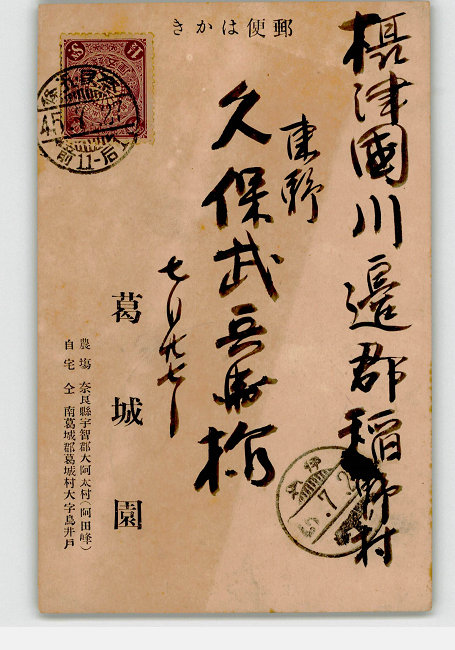 郵便はかき
攝津國川邉郡稲野村
東野
久保武兵衛様
七月廿七日
葛城園
農塲 奈良縣宇智郡大阿太村(阿田峰)
自宅 仝 南葛城郡葛城村大字鳥井戸
奈良
前11-后1
伊丹